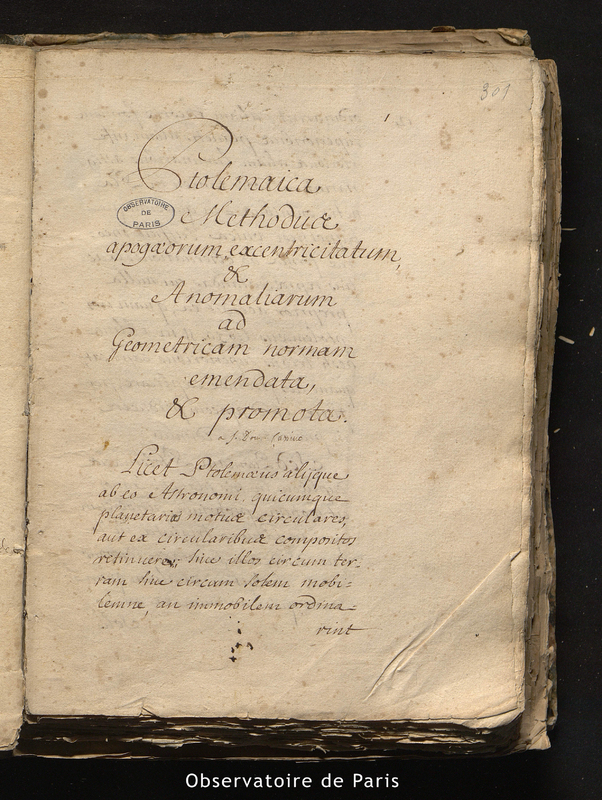 301
Ptolemaica
OBSERVATOIRE
DE
PARIS
Methodus
apogæorum, excentricitatum,
&
Anomaliarum
ad
Geometricam normam
emendata,
& promota.
Licet Ptolemæus alijque
ab eo Astronomi, quicumque
planetarios motus circulares,
aut ex circularibus compositos
retinuere; sive illos circum ter-
ram sive circum solem mobi-
lemne, an immobilem ordina-
rint
Observatoire de Paris